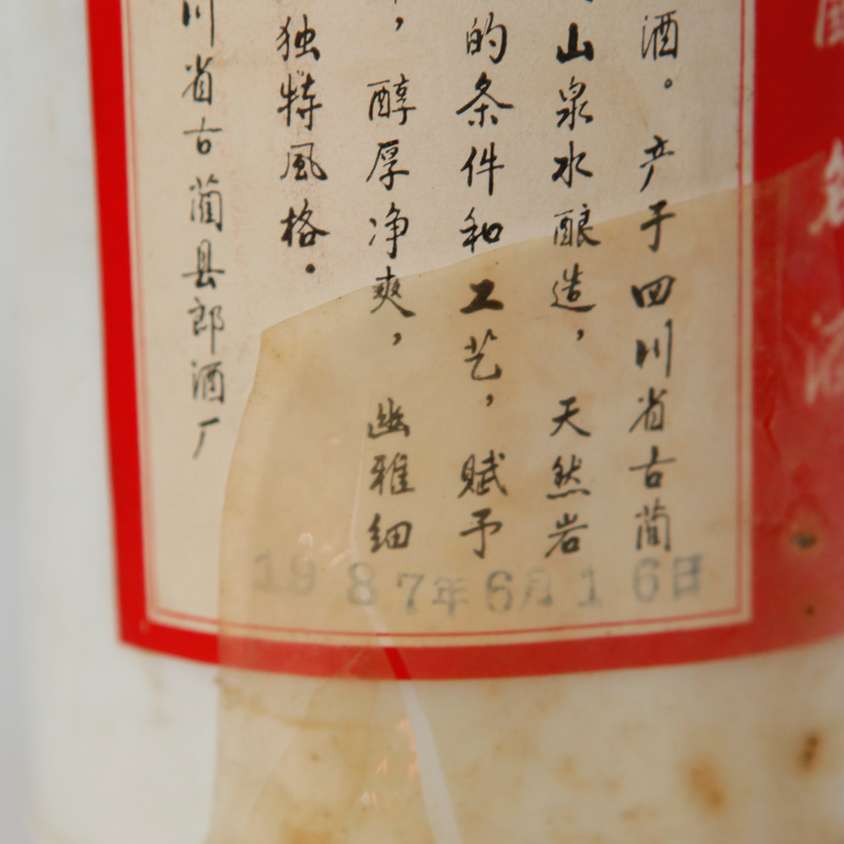 酒。产于四川省古蔺
山泉水酿造，天然岩
的条件和工艺，赋予
，醇厚净爽，幽雅细
独特風格．
川省古蔺县郎酒厂
1987年6月16日